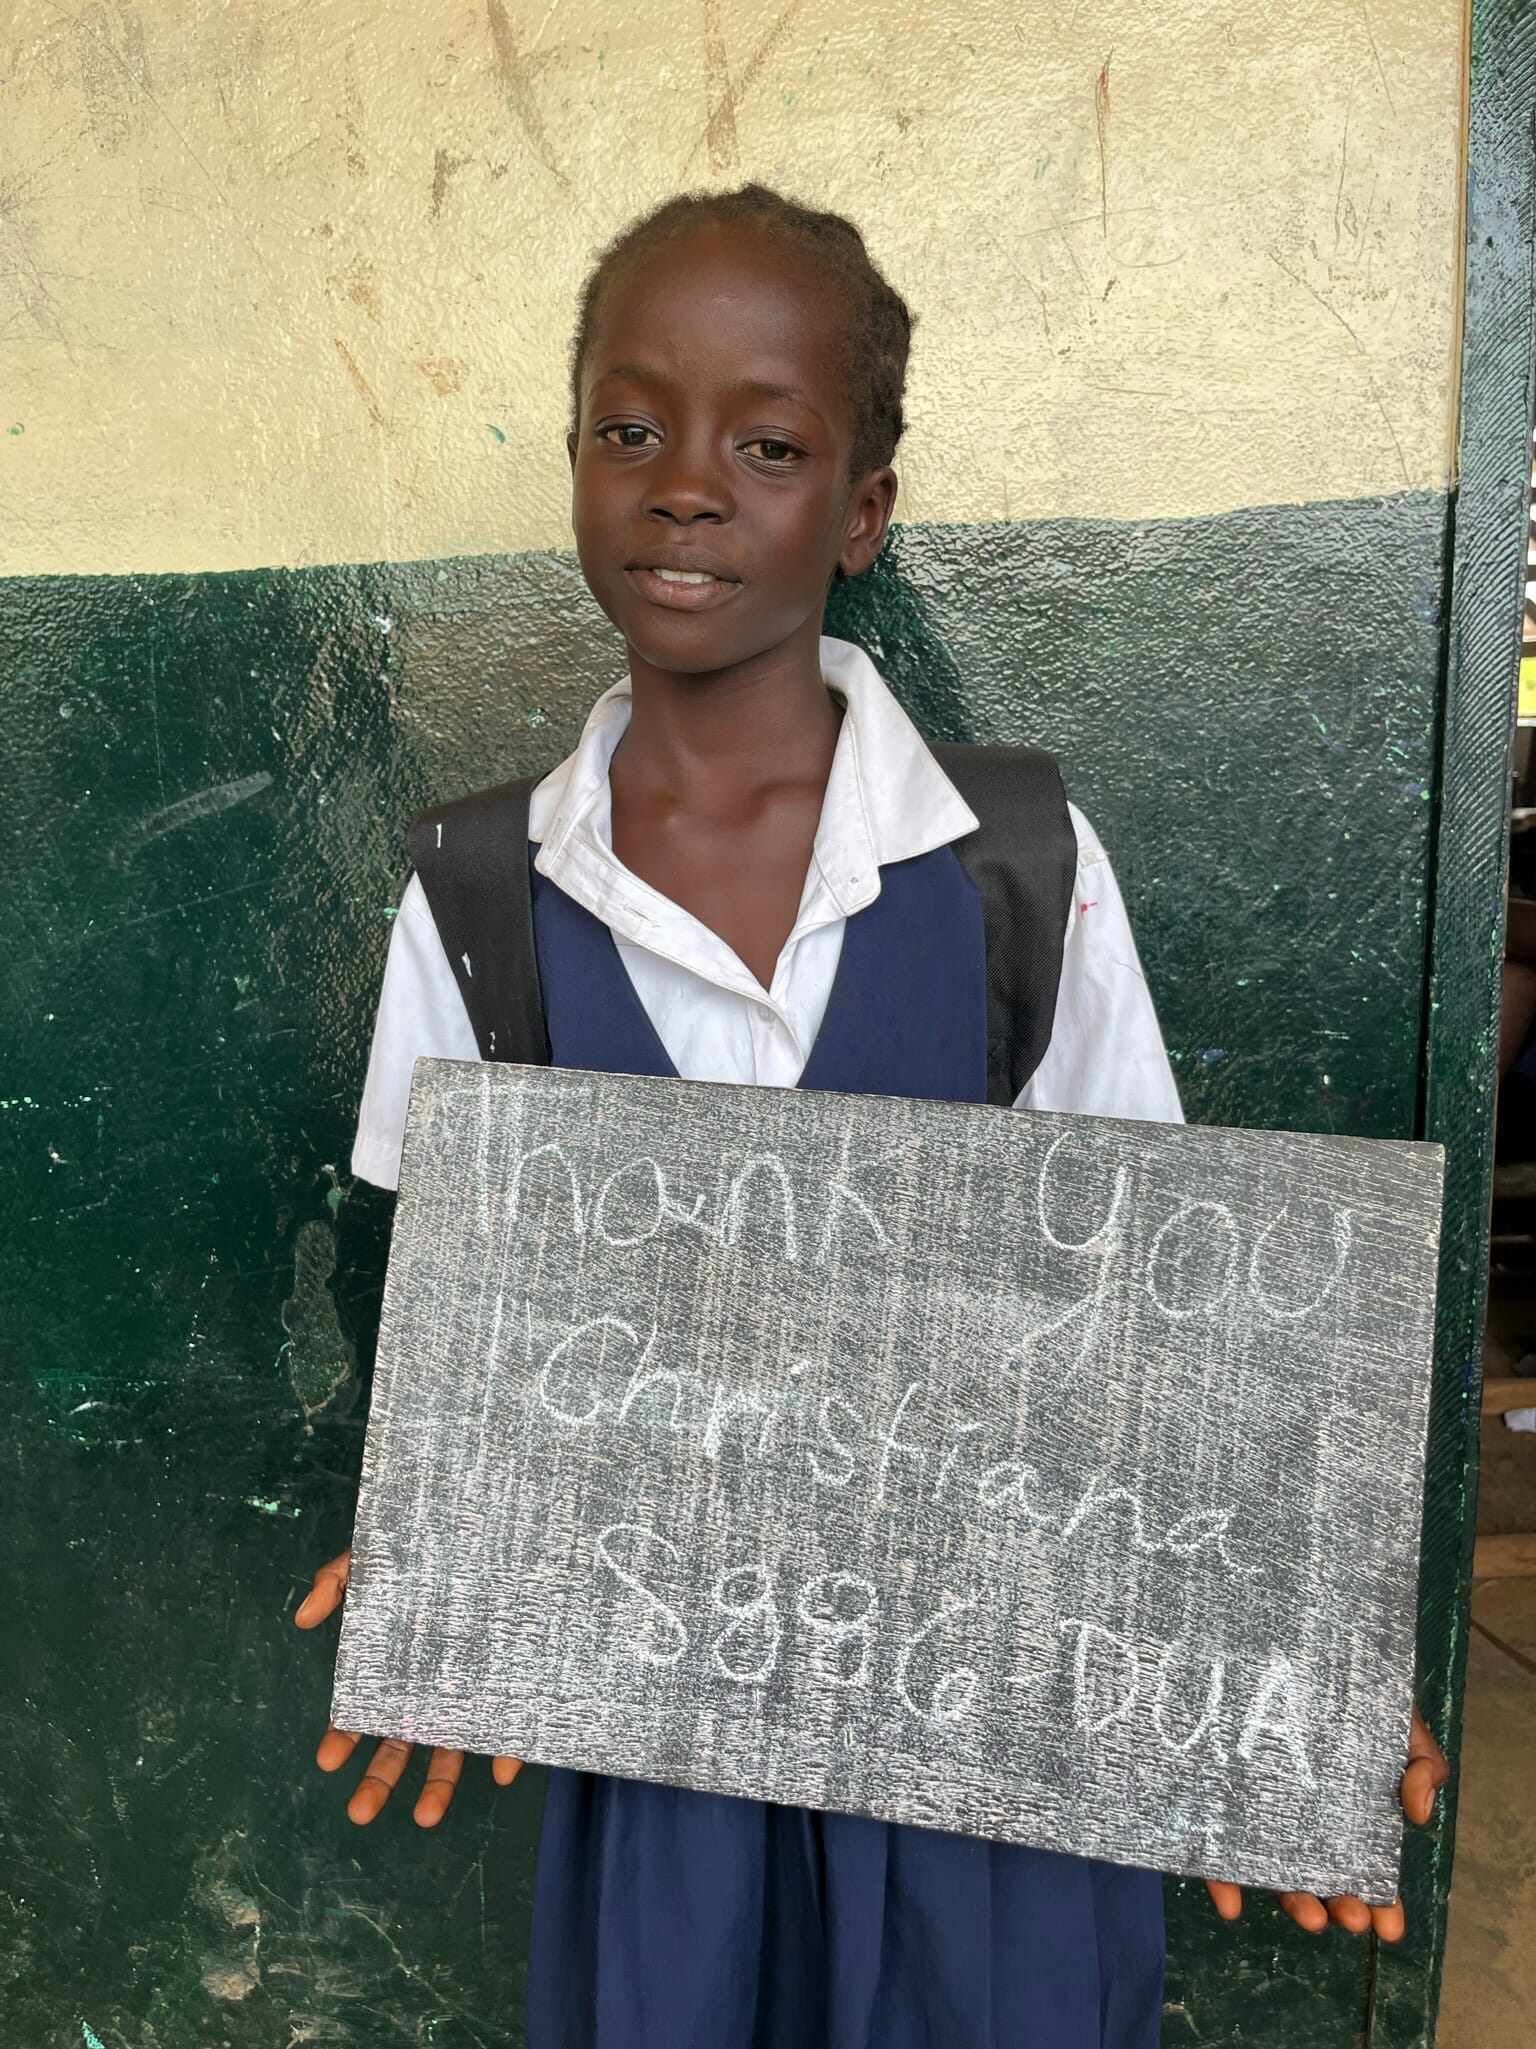 Thank you
"Christiana
S886-DUA